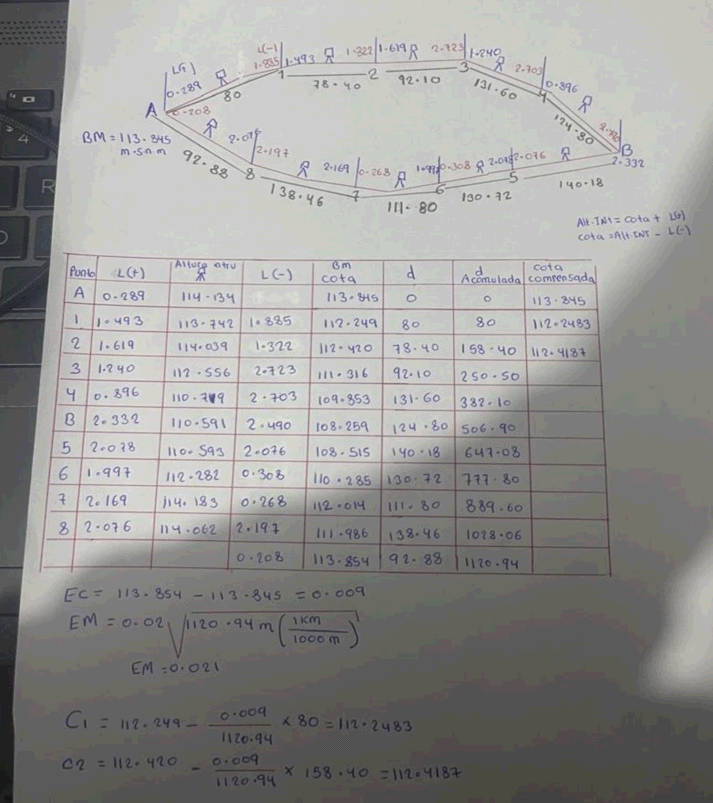 L(-)
1.885 1.493 1.322 1.619 2.723 1.240 2.703 0.896
L(+)
0.289
80 1 78.40 2 92.10 3 131.60 4 124.80
A 0.208
BM = 113.845
m.s.n.m
2.076 2.197 2.169 0.268 1.997 0.308 2.078 2.076 B
2.332
92.88 8 138.46 7 111.80 6 130.72 5 140.18
Alt.INT = cota + L(+)
cota = Alt.INT - L(-)
Punto L(+) L(-) Bm cota d d Acomulada cota compensada
A 0.289 114.134 113.845 0 0 113.845
1 1.493 113.742 1.885 112.249 80 80 112.2483
2 1.619 114.039 1.322 112.420 78.40 158.40 112.4187
3 1.240 112.556 2.723 111.316 92.10 250.50
4 0.896 110.749 2.703 109.853 131.60 382.10
B 2.332 110.591 2.490 108.259 124.80 506.90
5 2.078 110.593 2.076 108.515 140.18 647.08
6 1.997 112.282 0.308 110.285 130.72 777.80
7 2.169 114.183 0.268 112.014 111.80 889.60
8 2.076 114.062 2.197 111.986 138.46 1028.06
0.208 113.854 92.88 1120.94
EC = 113.854 - 113.845 = 0.009
EM = 0.02 √1120.94 m (1KM/1000 m)
EM = 0.021
C1 = 112.249 - 0.009/1120.94 x 80 = 112.2483
C2 = 112.420 - 0.009/1120.94 x 158.40 = 112.4187